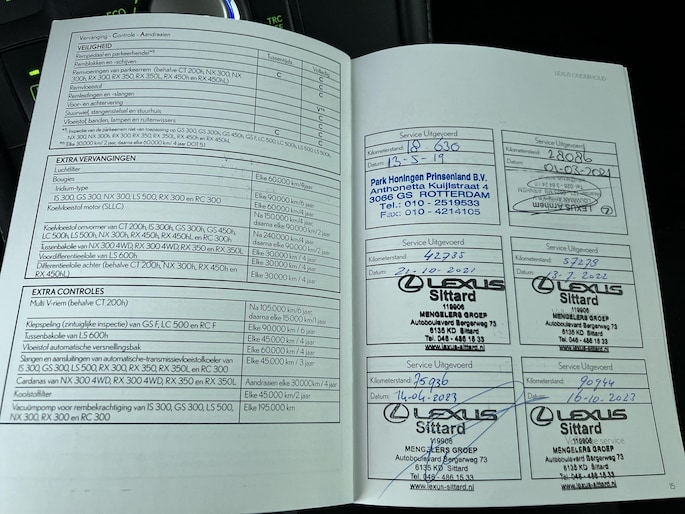 ECO
TRC
Vervanging - Controle - Aandraaien
VEILIGHEID
Tussentijds
Volledig
Rempedaal en parkeerhendel*¹⁾
C
Remblokken en -schijven
C
Remvoeringen van parkeerrem (behalve CT 200h, NX 300, NX 300h, RX 300, RX 350, RX 350L, RX 450h en RX 450hL)
C
C
Remvloeistof
Remleidingen en -slangen
C
Voor- en achtervering
C
Stuurwiel, stangenstelsel en stuurhuis
Vloeistof, banden, lampen en ruitenwissers
C
C
EXTRA VERVANGINGEN
Luchtfilter
Elke 60.000 km/4 jaar
Bougies
Iridium-type
IS 300, GS 300, NX 300, LS 500, RX 300 en RC 300
Elke 90.000 km/6 jaar
Elke 60.000 km/4 jaar
Koelvloeistof motor (SLLC)
Na 150.000 km/
daarna elke 90.000 km/
Koelvloeistof omvormer van CT 200h, IS 300h, GS 300h, GS 450h, LC 500h, LS 500h, NX 300h, RX 450h, RX 450hL en RC 300h
Na 240.000 km/
daarna elke 90.000 km/
Tussenbakolie van NX 300 4WD, RX 300 4WD, RX 350 en RX 350L
Elke 60.000 km / 4 jaar
Voordifferentieelolie van LS 600h
Elke 30.000 km / 4 jaar
Differentieelolie achter (behalve CT 200h, NX 300h, RX 450h en RX 450hL)
Elke 30.000 km / 4 jaar
EXTRA CONTROLES
Multi V-riem (behalve CT 200h)
Na 105.000 km/6 jaar,
daarna elke 15.000 km/1 jaar
Klepspeling (zintuiglijke inspectie) van GS F, LC 500 en RC F
Elke 90.000 km / 6 jaar
Tussenbakolie van LS 600h
Elke 45.000 km / 4 jaar
Vloeistof automatische versnellingsbak
Elke 60.000 km / 4 jaar
Slangen en aansluitingen van automatische-transmissievloeistofkoeler van IS 300, GS 300, LS 500, RX 300, RX 350, RX 350L en RC 300
Elke 45.000 km / 3 jaar
Cardanas van NX 300 4WD, RX 300 4WD, RX 350 en RX 350L
Aandraaien elke 30.000 km / 4 jaar
Koolstoffilter
Elke 45.000 km/2 jaar
Vacuümpomp voor rembekrachtiging van IS 300, GS 300, LS 500, NX 300, RX 300 en RC 300
Elke 195.000 km
LEXUS ONDERHOUD
Service Uitgevoerd
Kilometerstand: 18 630
Datum: 13-5-19
Park Honingen Prinsenland B.V.
Anthonetta Kuijlstraat 4
3066 GS ROTTERDAM
Tel.: 010 - 2519533
Fax: 010 - 4214105
Service Uitgevoerd
Kilometerstand: 28086
Datum: 01-03-2021
LEXUS Arnhem
Service Uitgevoerd
Kilometerstand: 42735
Datum: 21-10-2021
LEXUS
Sittard
119906
MENGELERS GROEP
Autoboulevard Bergerweg 73
6135 KD Sittard
Tel. 046 - 486 15 33
www.lexus-sittard.nl
Service Uitgevoerd
Kilometerstand: 57279
Datum: 13-7-2022
LEXUS
Sittard
119906
MENGELERS GROEP
Autoboulevard Bergerweg 73
6135 KD Sittard
Tel. 046 - 486 15 33
www.lexus-sittard.nl
Service Uitgevoerd
Kilometerstand: 75936
Datum: 14-04-2023
LEXUS
Sittard
119906
MENGELERS GROEP
Autoboulevard Bergerweg 73
6135 KD Sittard
Tel. 046 - 486 15 33
www.lexus-sittard.nl
Service Uitgevoerd
Kilometerstand: 90944
Datum: 16-10-2023
LEXUS
Sittard
119906
service
MENGELERS GROEP
Autoboulevard Bergerweg 73
6135 KD Sittard
Tel. 046 - 486 15 33
www.lexus-sittard.nl
15